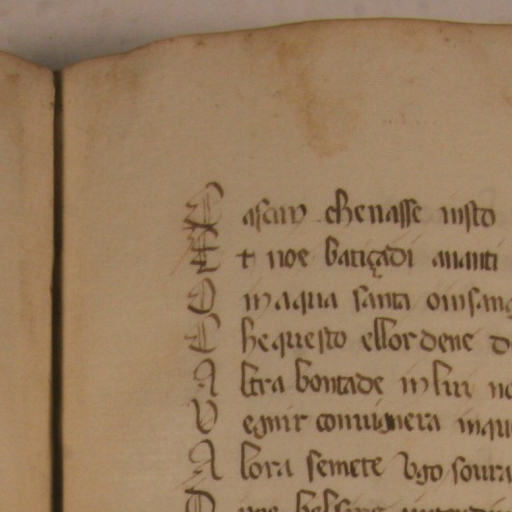 C ascun che nasse insto
E t noe batiçadi ananti
O in aqua santa o in sang
C he questo ell ordene d
A ltra bontade in lui no
V egnir conuignera in qu
A lora semete Vgo soura